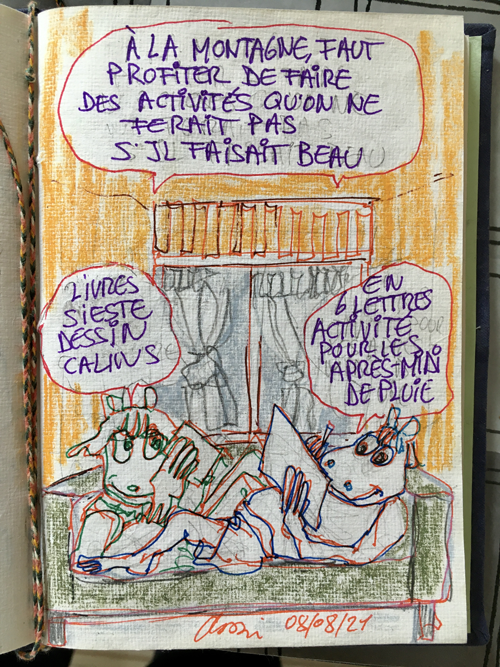 À LA MONTAGNE, FAUT
PROFITER DE FAIRE
DES ACTIVITÉS QU'ON NE
FERAIT PAS
S'IL FAISAIT BEAU
LIVRES
SIESTE
DESSIN
CALINS
EN
6 LETTRES
ACTIVITÉ
POUR LES
APRÈS-MIDI
DE PLUIE
08/08/21